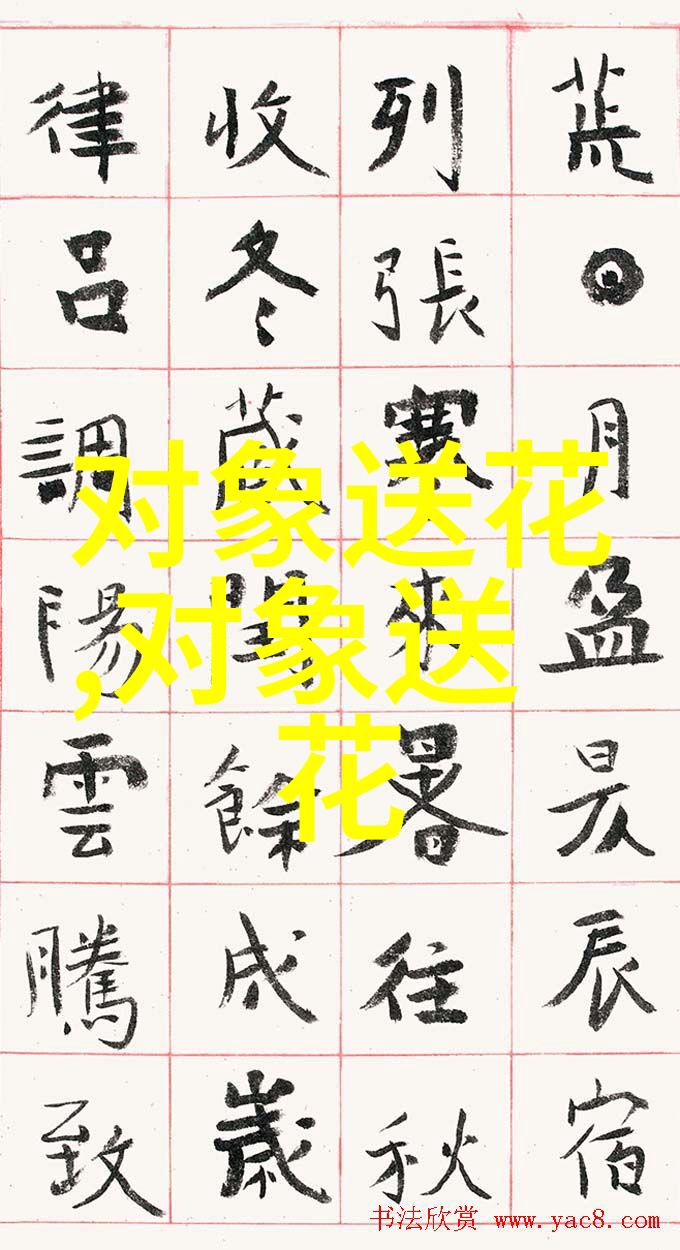 荒日月盈昃辰宿
列張寒來暑往秋
收冬藏閏餘成歲
律吕調陽雲騰致
对象送花
,对象送
花
书法欣赏 www.yac8.com